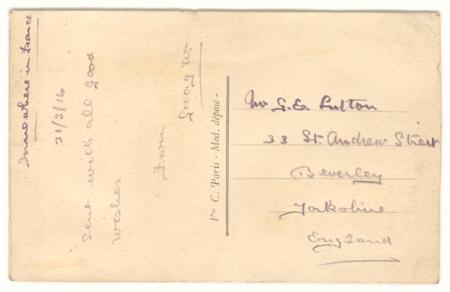 Somewhere in France
21/3/16
Sent with all good
wishes
From
Vve C. Paris - Mod. déposé -
Mr G. Ed
33 St. Andrew Street
Beverley
Yorkshire
England